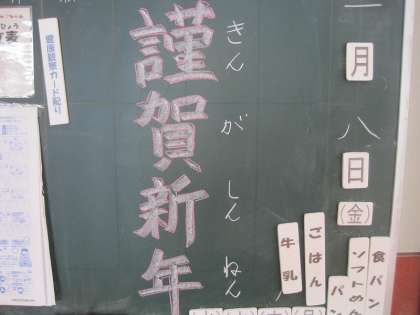 一月八日(金)
食パン
ソフトめん
パン
ごはん
牛乳
きんがしんねん
謹賀新年
健康観察カード配り